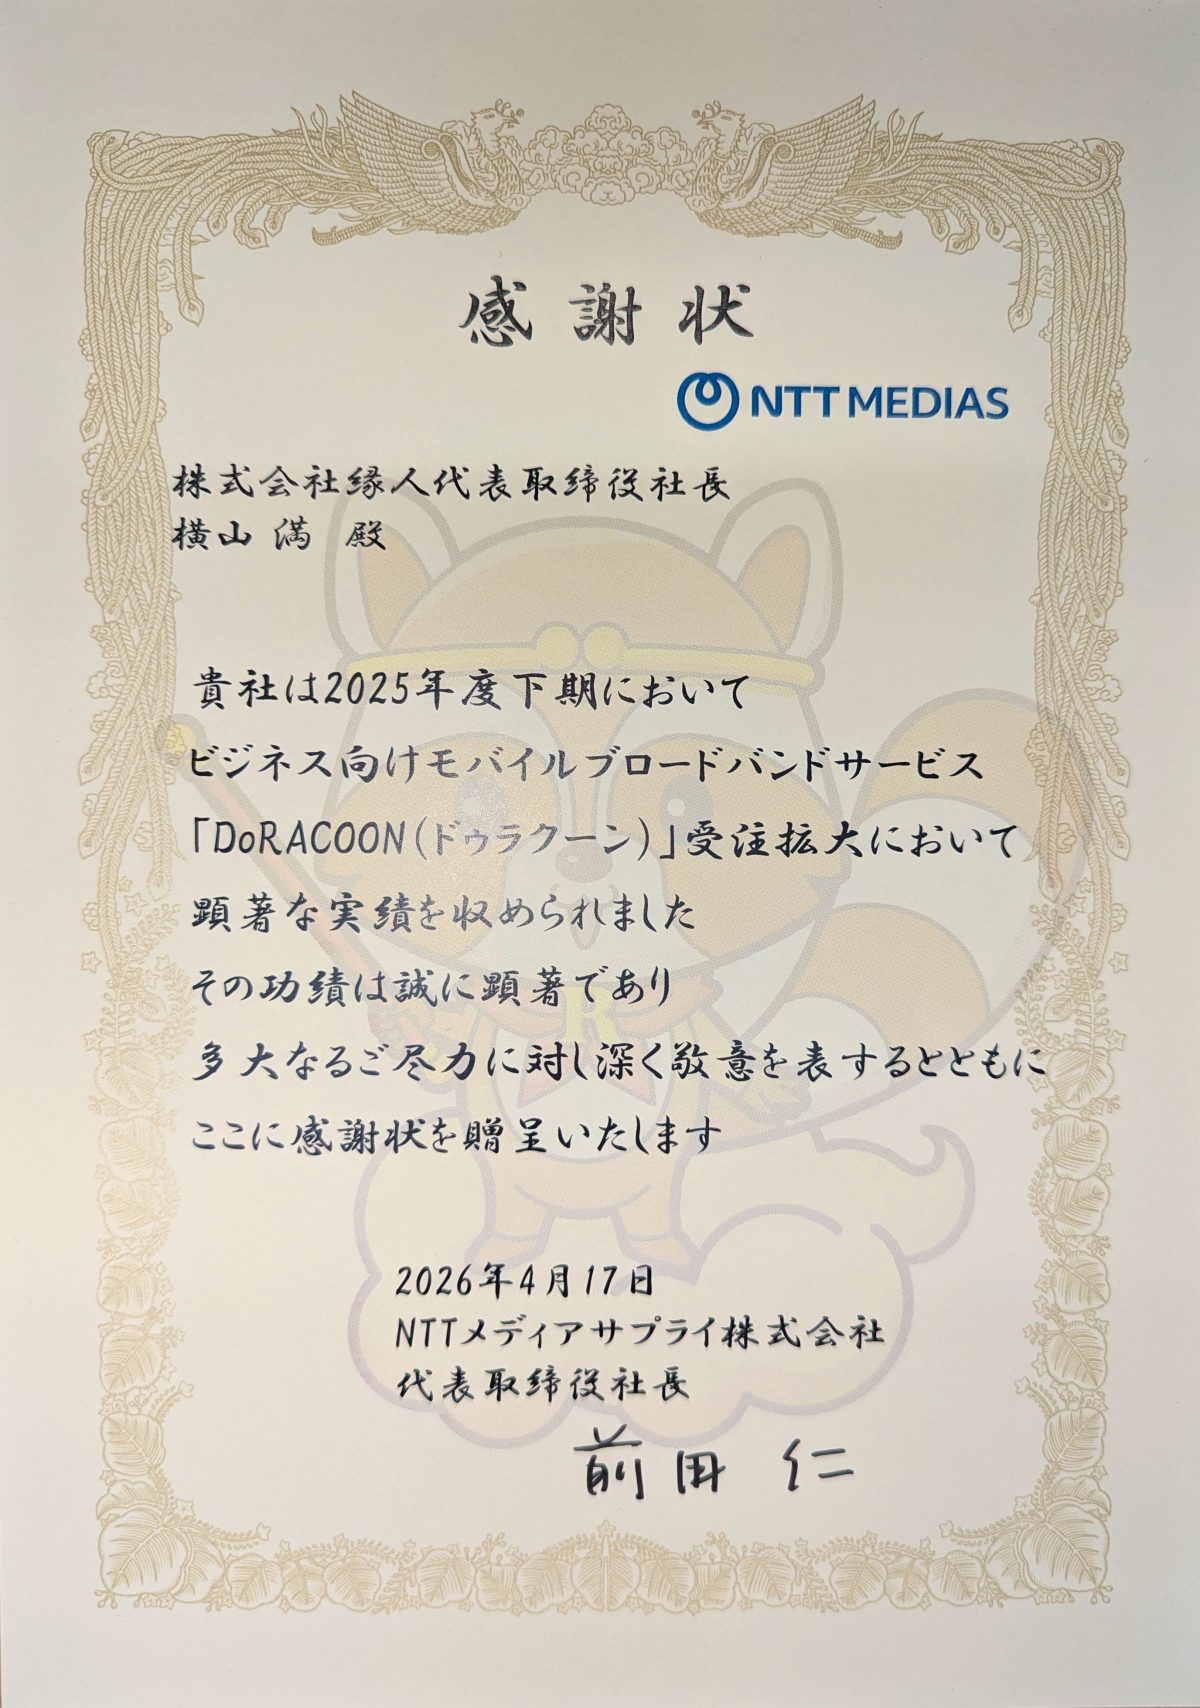 感謝状
NTT MEDIAS
株式会社縁人代表取締役社長
横山 満 殿
貴社は2025年度下期において
ビジネス向けモバイルブロードバンドサービス
「DoRACOON(ドゥラクーン)」受注拡大において
顕著な実績を収められました
その功績は誠に顕著であり
多大なるご尽力に対し深く敬意を表するとともに
ここに感謝状を贈呈いたします
2026年4月17日
NTTメディアサプライ株式会社
代表取締役社長
前田 仁
R